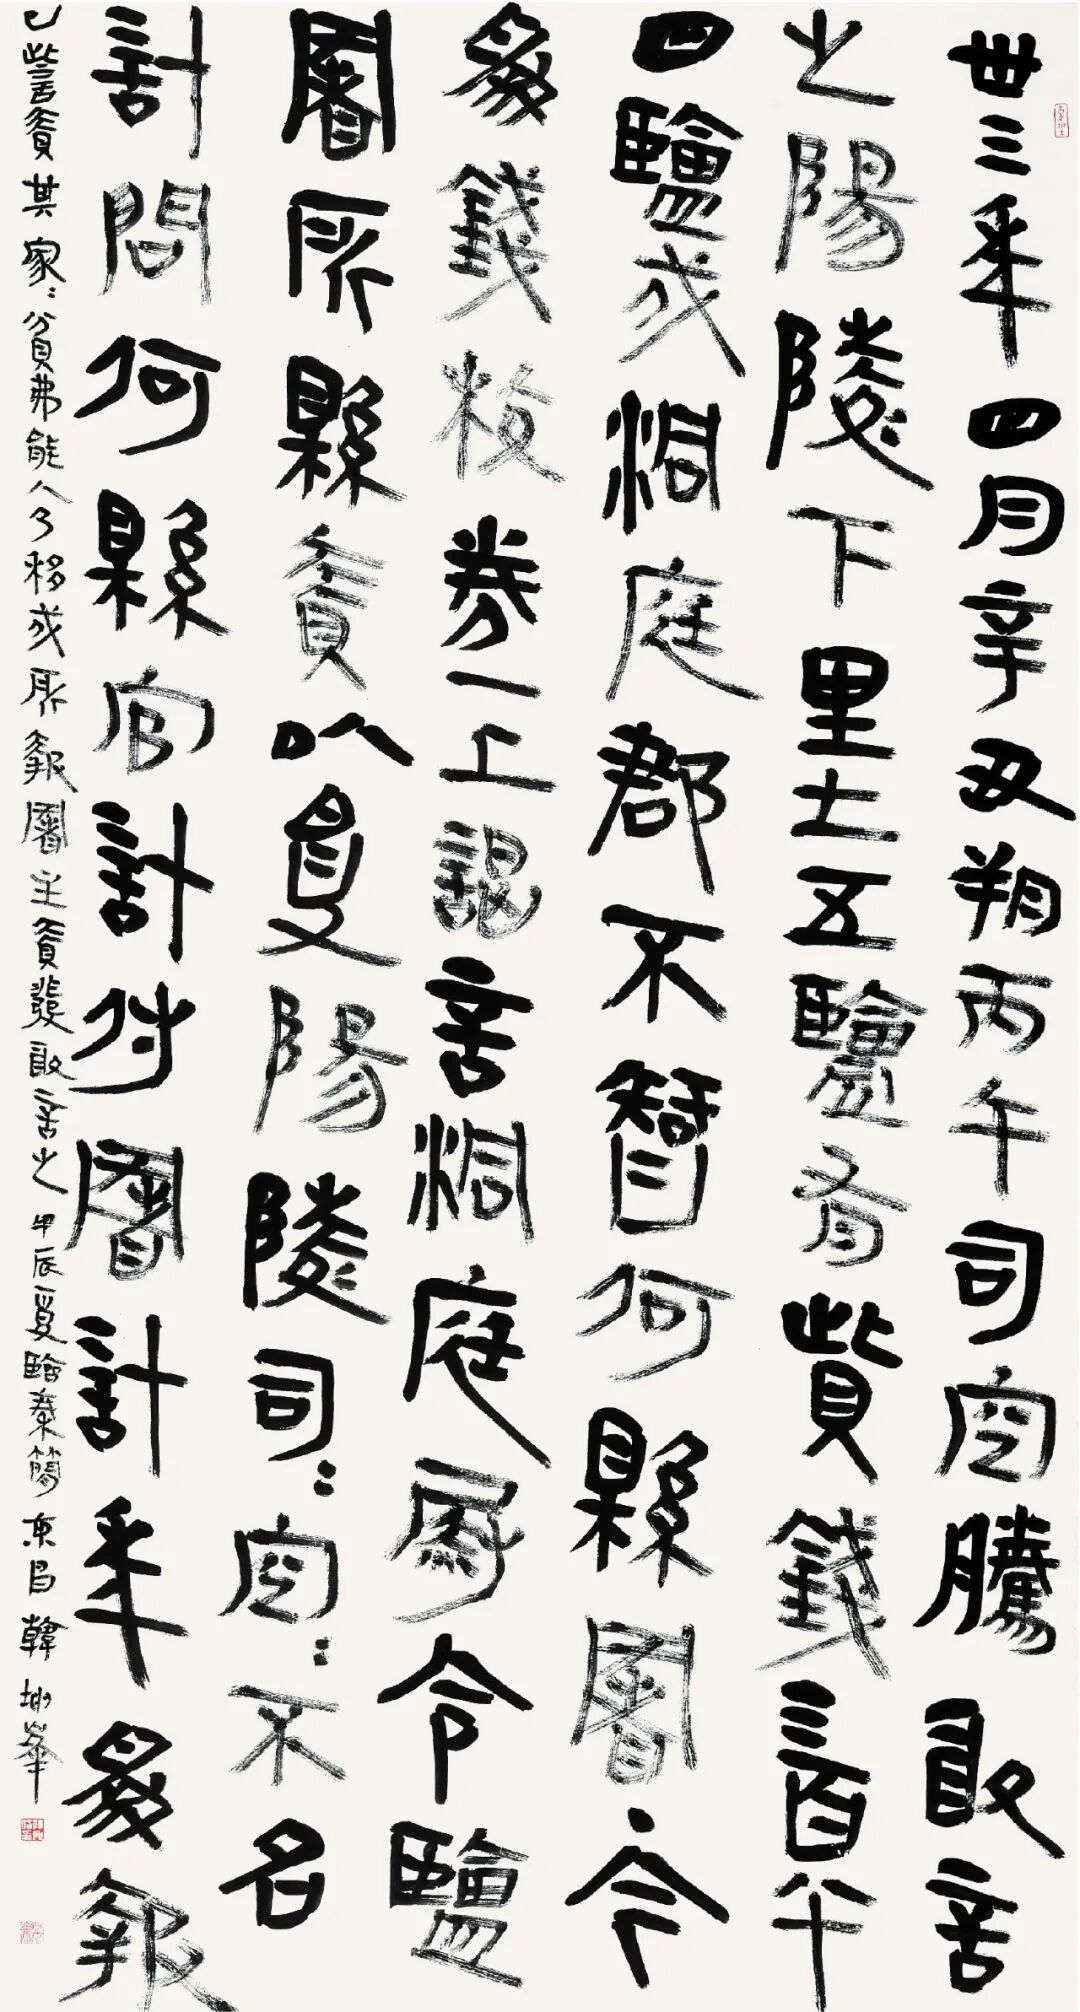 卅三年四月辛丑朔丙午司空騰敢言
之陽陵下里士五鹽有貲錢三百八十
四鹽戍洞庭郡不智何縣署今
為錢校券一上謁言洞庭尉令鹽
署所縣責以受陽陵司=空=不名
計問何縣官計付署計年為報
已訾責其家=貧弗能入乃移戍所報署主責發敢言之 甲辰夏臨秦簡 東昌韓